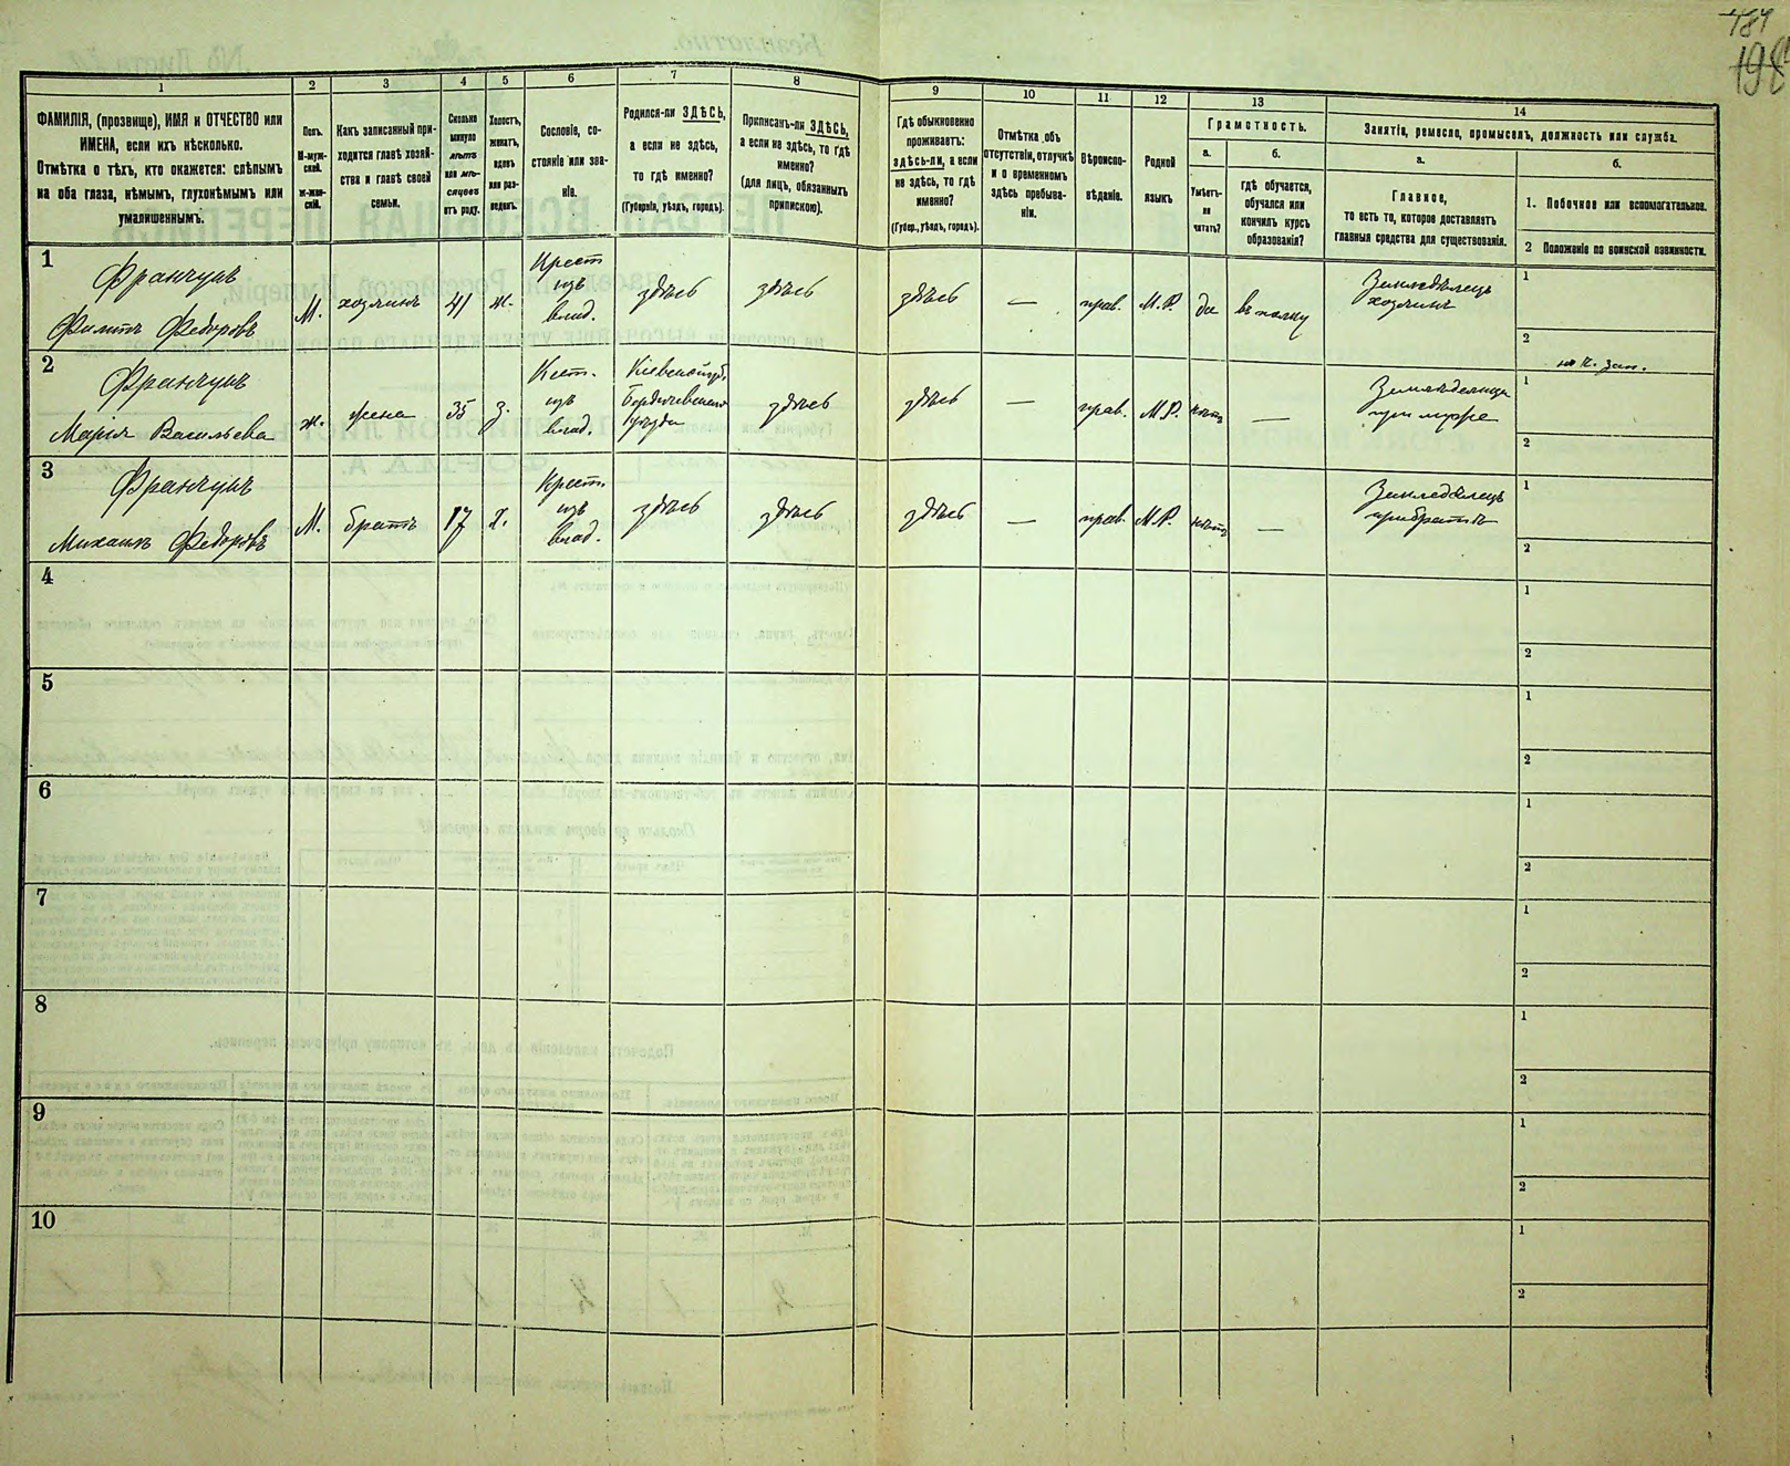 184
198
1
2
3
4
5
6
7
8
9
10
11
12
13
14
ФАМИЛІЯ, (прозвище), ИМЯ и ОТЧЕСТВО или
ИМЕНА, если ихъ нѣсколько.
Отмѣтка о тѣхъ, кто окажется: слѣпымъ
на оба глаза, нѣмымъ, глухонѣмымъ или
умалишеннымъ.
Полъ.
М-муж-
ской.
ж-жен-
скій.
Какъ записанный при-
ходится главѣ хозяй-
ства и главѣ своей
семьи.
Сколько
минуло
лѣтъ
или мѣ-
сяцевъ
отъ роду.
Холостъ,
женатъ,
вдовъ
или раз-
веденъ.
Сословіе, со-
стояніе или зва-
ніе.
Родился-ли ЗДѢСЬ,
а если не здѣсь,
то гдѣ именно?
(Губернія, уѣздъ, городъ).
Приписанъ-ли ЗДѢСЬ,
а если не здѣсь, то гдѣ
именно?
(для лицъ, обязанныхъ
припискою).
Гдѣ обыкновенно
проживаетъ:
здѣсь-ли, а если
не здѣсь, то гдѣ
именно?
(Губер., уѣздъ, городъ).
Отмѣтка объ
отсутствіи, отлучкѣ
и о временномъ
здѣсь пребыва-
ніи.
Вѣроиспо-
вѣданіе.
Родной
языкъ
Грамотность.
а.
Умѣетъ-
ли
читать?
б.
гдѣ обучается,
обучался или
кончилъ курсъ
образованія?
Занятіе, ремесло, промыселъ, должность или служба.
а.
Главное,
то есть то, которое доставляетъ
главныя средства для существованія.
б.
1. Побочное или вспомогательное.
2 Положеніе по воинской повинности.
1
Францушъ
Филиппъ Федоровъ
М.
хозяинъ
41
ж.
Крест
изъ
влад.
здѣсь
здѣсь
здѣсь
—
прав.
М.Р.
да
въ полку
Земледѣлецъ
хозяинъ
1
2
2
Францушъ
Марія Васильева
ж.
жена
35
з.
Кест.
изъ
влад.
Кіевской губ.
Бердичевскаго
уѣзда
здѣсь
здѣсь
—
прав.
М.Р.
нѣтъ
—
при мужѣ
1
2
3
Францушъ
Михаилъ Федоровъ
М.
братъ
17
х.
Крест.
изъ
влад.
здѣсь
здѣсь
здѣсь
—
прав.
М.Р.
нѣтъ
—
Земледѣлецъ
при братѣ
1
2
4
1
2
5
1
2
6
1
2
7
1
2
8
1
2
9
1
2
10
1
2